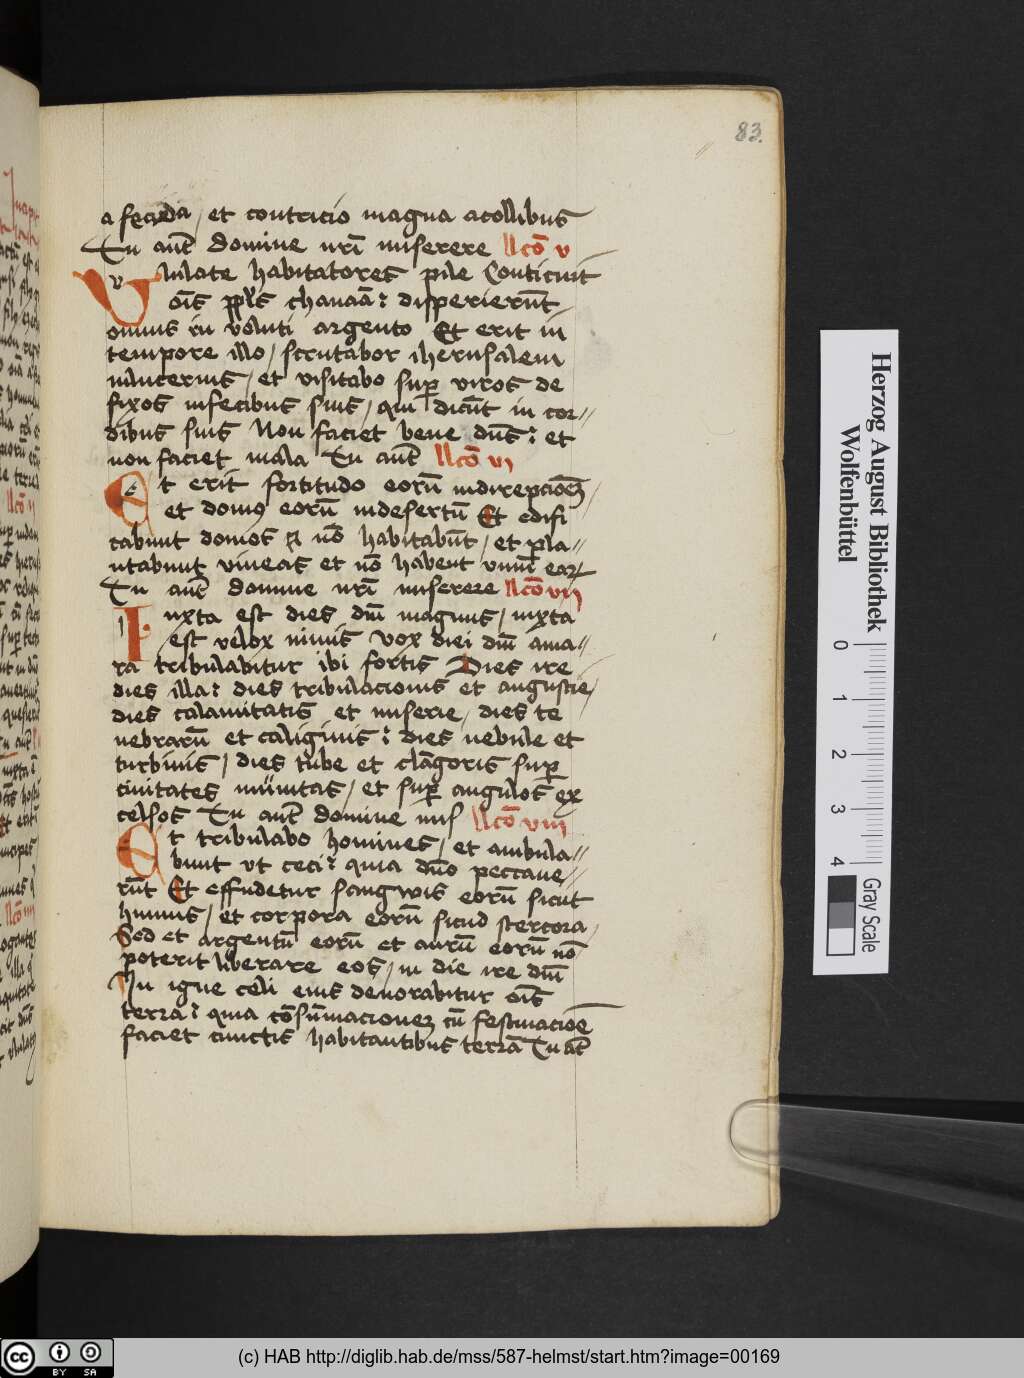 83.
a secūda / et contricio magna acollibus
Tu aūt domine nr̄i miserere llcō v
Ululate habitatores pile Conticuit
oīs ppl̄s chanaā : disperierūt
omnis in voluti argento Et erit in
tempore illo / scrutabor iherusalem
inlucernis / et visitabo sup̄ viros de
fixos infecibus suis / qui dicūt in cor//
dibus suis Non faciet bene dn̄s : et
non faciet mala Tu aūt llcō vi
Et erit fortitudo eorū indirepcionē /
et domꝰ eorū indesertū Et edifi
cabunt domos ⁊ nō habitabūt / et pla//
ntabunt vineas et nō habent vinū eaꝝ
Tu aūt domine nr̄i miserere llcō vii
Iuxta est dies dn̄i magnus / iuxta
est velox nimis Vox diei dn̄i ama//
ra tribulabitur ibi fortis Dies ire /
dies illa : dies tribulacionis et angustie /
dies calamitatis et miserie / dies te
nebrarū et caliginis : dies nebule et
turbinis / dies tube et clāgoris sup̄
ciuitates munitas / et sup̄ angulos ex
celsos Tu aūt domine mis llcō viii
Et tribulabo homines / et ambula//
bunt vt ceci : quia dn̄o peccaue//
rūt Et effudetur sangwis eorū sicut
humus / et corpora eorū sicud stercora /
Sed et argentū eorū et aurū eorū nō
poterit liberare eos / in die ire dn̄i
In igne celi eius deuorabitur oīs
terra : quia cōsūmacionem cū festinacioē
faciet cunctis habitantibus terrā Tu aūt
Herzog August Bibliothek
Wolfenbüttel
0 1 2 3 4
Gray Scale
cc BY SA
(c) HAB http://diglib.hab.de/mss/587-helmst/start.htm?image=00169